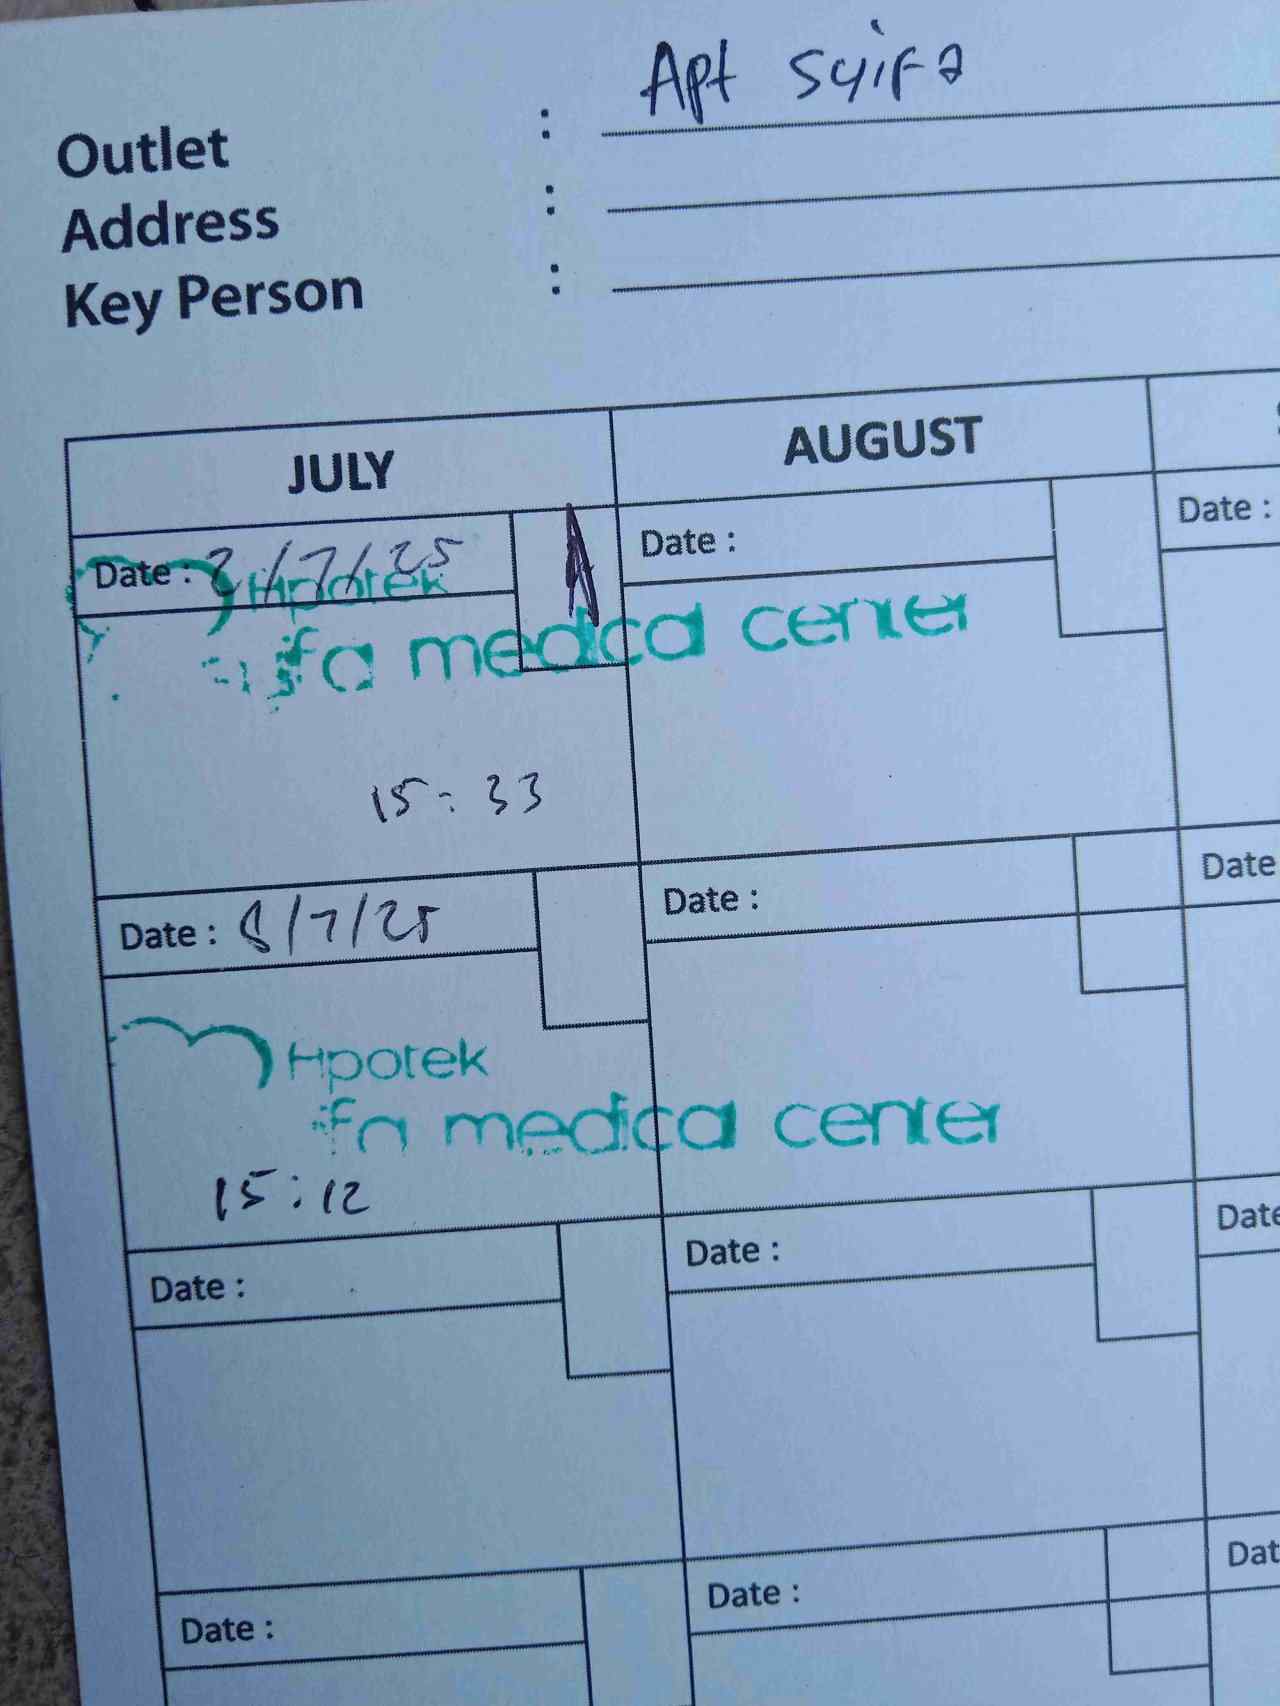 Outlet : Apt Syifa
Address :
Key Person :
JULY AUGUST
Date : 2/7/25 Date : Date :
Apotek
ifa medical center
15:33
Date : 8/7/25 Date : Date
Apotek
ifa medical center
15:12
Date : Date : Date
Date : Date : Dat